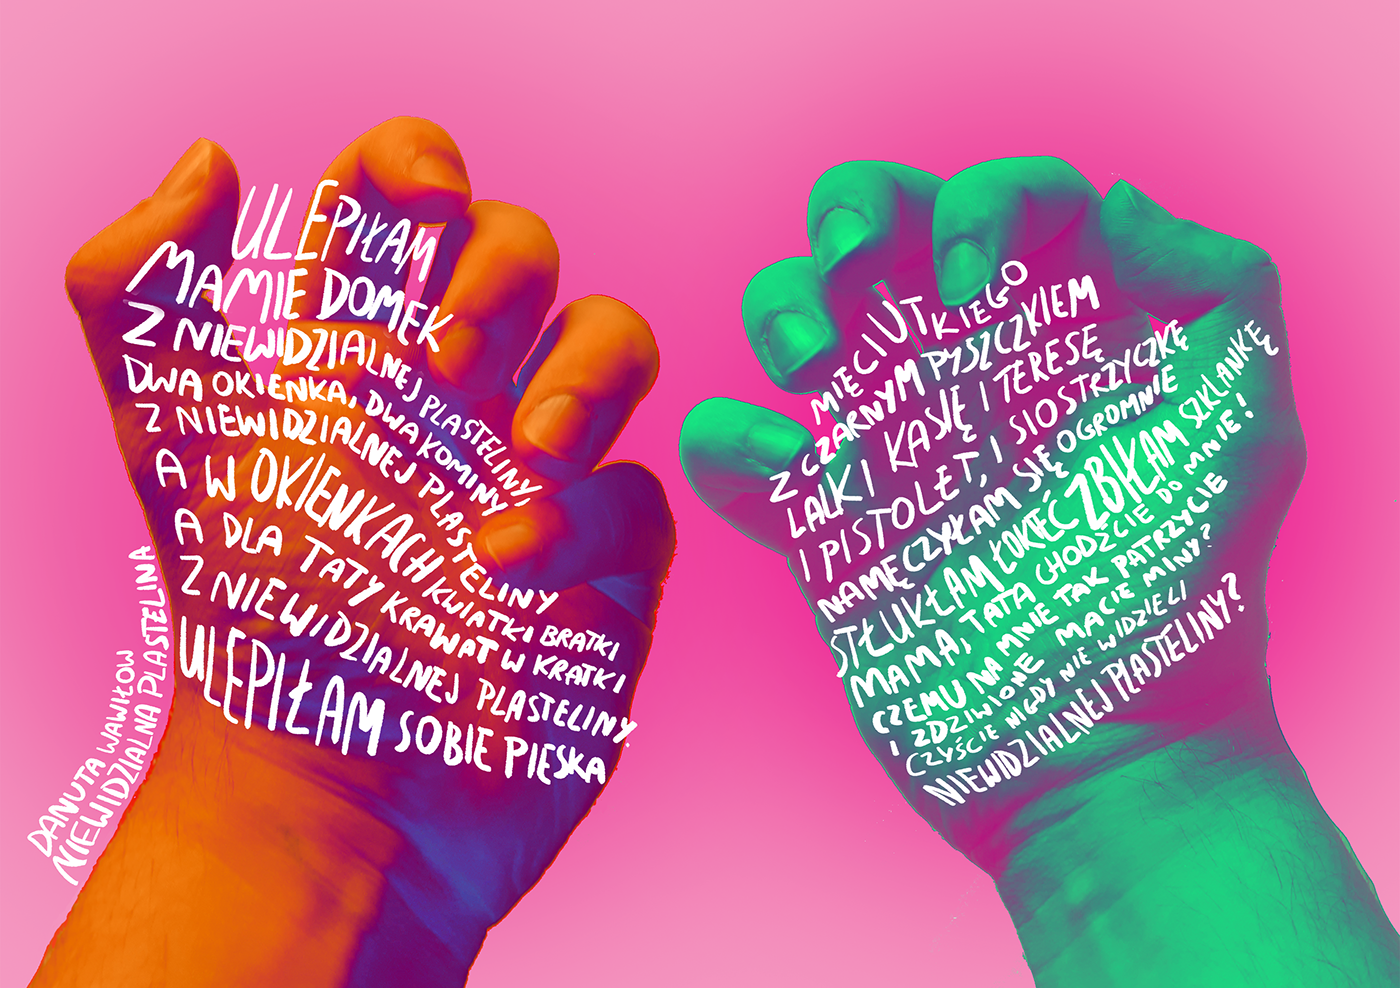 ULEPIŁAM
MAMIE DOMEK
Z NIEWIDZIALNEJ PLASTELINY,
DWA OKIENKA, DWA KOMINY
Z NIEWIDZIALNEJ PLASTELINY
A W OKIENKACH KWIATKI BRATKI
A DLA TATY KRAWAT W KRATKI
Z NIEWIDZIALNEJ PLASTELINY.
ULEPIŁAM SOBIE PIESKA
DANUTA WAWIŁOW
NIEWIDZIALNA PLASTELINA
MIĘCIUTKIEGO
Z CZARNYM PYSZCZKIEM
LALKI KASIĘ I TERESĘ
I PISTOLET, I SIOSTRZYCZKĘ
NAMĘCZYŁAM SIĘ OGROMNIE
STŁUKŁAM ŁOKEĆ ZBIŁAM SZKLANKĘ
MAMA, TATA CHODŹCIE DO MNIE!
CZEMU NA MNIE TAK PATRZYCIE
I ZDZIWIONE MACIE MINY?
CZYŚCIE NIGDY NIE WIDZIELI
NIEWIDZIALNEJ PLASTELINY?